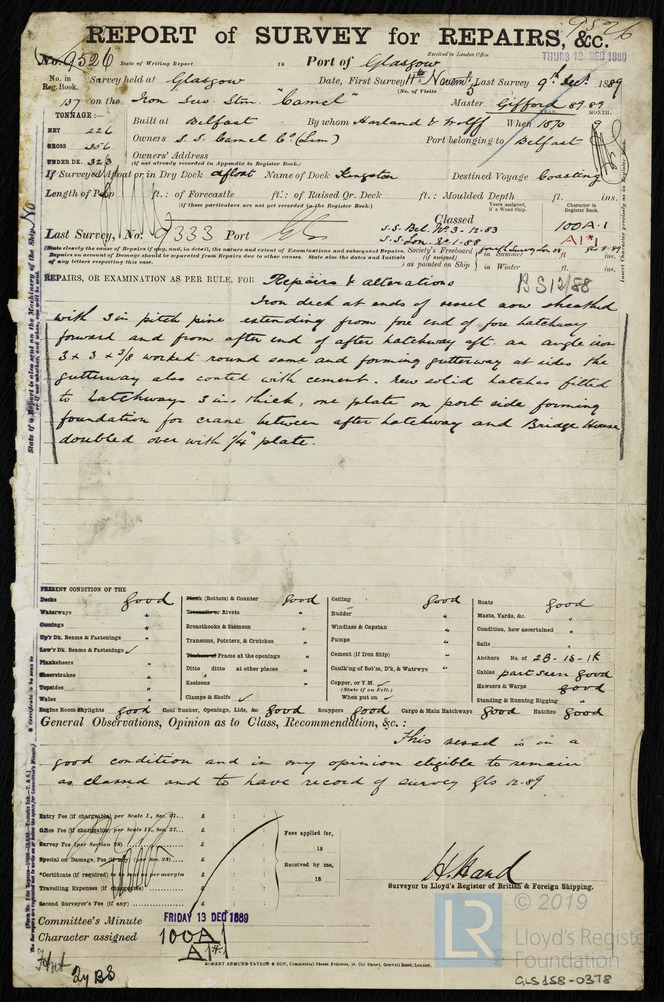 9526
REPORT of SURVEY for REPAIRS, &c.
No. 9526 Date of Writing Report 18 Port of Glasgow Received in London Office THURS 12 DEC 1889
No. in Reg. Book. Survey held at Glasgow Date, First Survey 11th Novemb. Last Survey 9th Dec. 1889
(No. of Visits 5)
137 on the Iron Scw. Stm. "Camel" Master Gifford 89.89
TONNAGE:— YEAR. MONTH.
NET 226 Built at Belfast By whom Harland & Wolff When 1870 9
GROSS 356 Owners S.S. Camel Co. (Lim) Port belonging to Belfast
UNDER DK. 323 Owners' Address
(if not already recorded in Appendix to Register Book.)
If Surveyed Afloat or in Dry Dock afloat Name of Dock Kingston Destined Voyage Coasting
Length of Poop ft. : of Forecastle ft. : of Raised Qr. Deck ft. : Moulded Depth ft. ins.
(if these particulars are not yet recorded in the Register Book.)
Years assigned, if a Wood Ship. Character in Register Book.
Classed
Last Survey, No. 9333 Port Gls S.S. Bel. No. 3-12-83 100A.1
S.S. Lon. No. 1-88 A1*1
(State clearly the cause of Repairs if any, and, in detail, the nature and extent of Examinations and subsequent Repairs. Repairs on account of Damage should be separated from Repairs due to other causes. State also the dates and Initials of any letters respecting this case.
Society's Freeboard (if assigned) as painted on Ship in Summer ft. ins.
in Winter ft. ins.
BS 12/88
REPAIRS, OR EXAMINATION AS PER RULE, FOR Repairs & alterations
Iron deck at ends of vessel now sheathed
with 3 in pitch pine extending from fore end of fore hatchway
forward and from after end of after hatchway aft. an angle iron
3 x 3 x 3/8 worked round same and forming gutterway at sides the
gutterway also coated with cement. new solid hatches fitted
to hatchways 3 ins thick, one plate on port side forming
foundation for crane between after hatchway and Bridge House
doubled over with 1/4" plate.
PRESENT CONDITION OF THE
Decks good Plank (Bottom) & Counter good Ceiling good Boats good
Waterways " Treenails or Rivets " Rudder " Masts, Yards, &c. "
Comings " Breasthooks & Stemson " Windlass & Capstan " Condition, how ascertained "
Up'r Dk. Beams & Fastenings " Transoms, Pointers, & Crutches " Pumps " Sails "
Low'r Dk. Beams & Fastenings ✓ Timbers or Frame at the openings " Cement (if Iron Ship) " Anchors No. of 2B-1S-1K
Planksheers " Ditto ditto at other places " Caulk'ng of Bot'm, D'k, & Watrwys " Cables part seen good
Sheerstrakes " Keelsons " Copper, or Y.M. ✓ Hawsers & Warps good
Topsides " (State if on Felt.)
Wales " Clamps & Shelfs ✓ When put on ✓ Standing & Running Rigging "
Engine Room Skylights good Coal Bunker, Openings, Lids, &c good Scuppers good Cargo & Main Hatchways good Hatches good
General Observations, Opinion as to Class, Recommendation, &c. :
This vessel is in a
good condition and in my opinion eligible to remain
as classed and to have record of survey Gls 12-89
Entry Fee (if chargeable) per Scale I., Sec. 27... £ : :
Office Fee (if chargeable) per Scale II., Sec. 27... £ : : Fees applied for,
Survey Fee (per Section 28) £ : : 18
Special or Damage, Fee (if any) (per Sec. 28) £ : : Received by me,
*Certificate (if required) to be sent as per margin £ : : 18
Travelling Expenses (if chargeable) £ : :
Second Surveyor's Fee (if any) £ : :
H. Hand
Surveyor to Lloyd's Register of British & Foreign Shipping.
Committee's Minute FRIDAY 13 DEC 1889
Character assigned 100A1
A1*1
BS
LR
© 2019
Lloyd's Register
Foundation
GLS158-0378